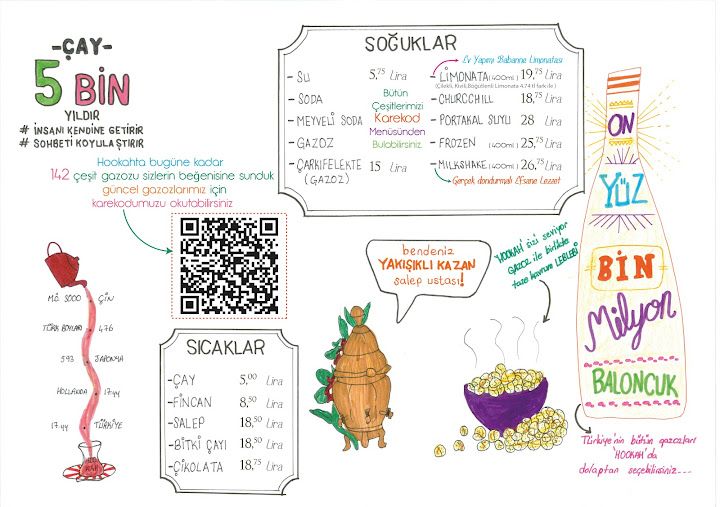 -ÇAY-
5 BİN
YILDIR
# İNSANI KENDİNE GETİRİR
# SOHBETİ KOYULAŞTIRIR
Hookahta bugüne kadar
142 çeşit gazozu sizlerin beğenisine sunduk
güncel gazozlarımız için
karekodumuzu okutabilirsiniz
M.Ö. 3000 ÇİN
TÜRK BOYLARI 476
593 JAPONYA
HOLLANDA 1744
1744 TÜRKİYE
SOĞUKLAR
- SU 5,75 Lira
- SODA
- MEYVELİ SODA
- GAZOZ
- ÇARKIFELEKTE 15 Lira
(GAZOZ)
Bütün
Çeşitlerimizi
Karekod
Menüsünden
Bulabilirsiniz
Ev Yapımı Babanne Limonatası
- LİMONATA (400ml) 19,75 Lira
(Çilekli, Kivili, Böğürtlenli Limonata 4.74 tl fark ile)
- CHURCCHILL 18,75 Lira
- PORTAKAL SUYU 28 Lira
- FROZEN (400ml) 25,75 Lira
- MILKSHAKE (400ml) 26,75 Lira
Gerçek dondurmalı Efsane Lezzet
SICAKLAR
-ÇAY 5,00 Lira
-FİNCAN 8,50 Lira
-SALEP 18,50 Lira
-BİTKİ ÇAYI 18,50 Lira
-ÇİKOLATA 18,75 Lira
bendeniz
YAKIŞIKLI KAZAN
salep ustası!
'HOOKAH' sizi seviyor
GAZOZ ile birlikte
taze kavrum LEBLEBİ
ON
YÜZ
BİN
Milyon
BALONCUK
Türkiye'nin bütün gazozları
'HOOKAH'da
dolaptan seçebilirsiniz...